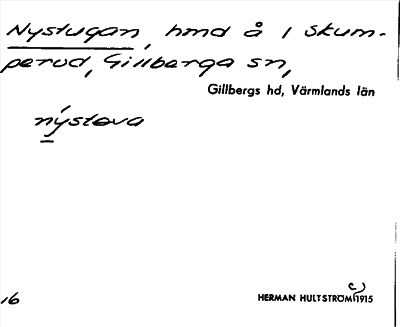 Nystugan, hmd å 1 Skum-
perud, Gillberga sn,
Gillbergs hd, Värmlands län
nýstova
16
HERMAN HULTSTRÖM(c) 1915